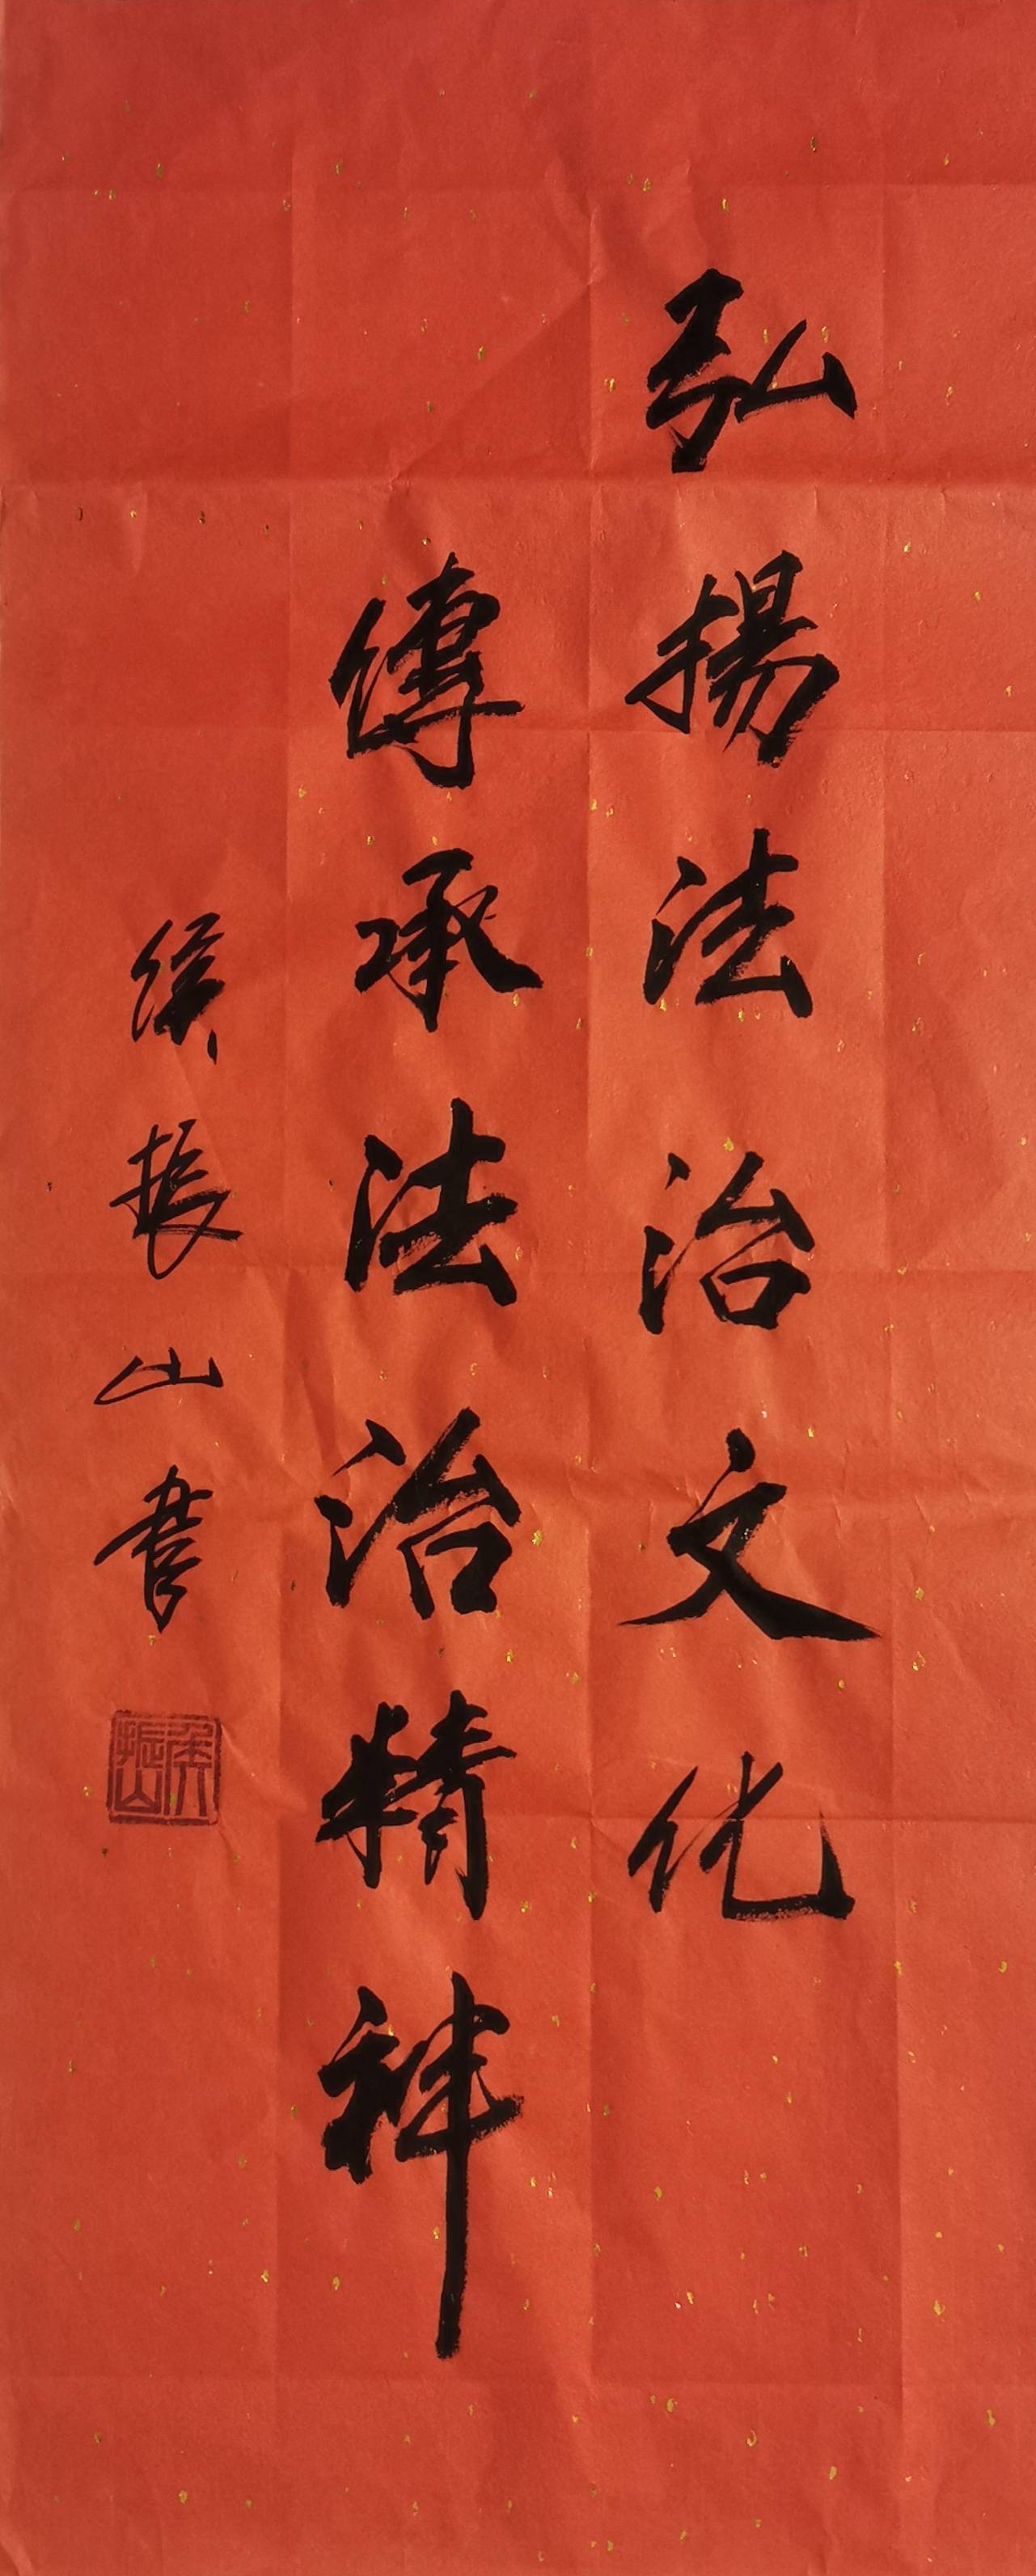 弘揚法治文化
傳承法治精神
侯振山書
侯振山